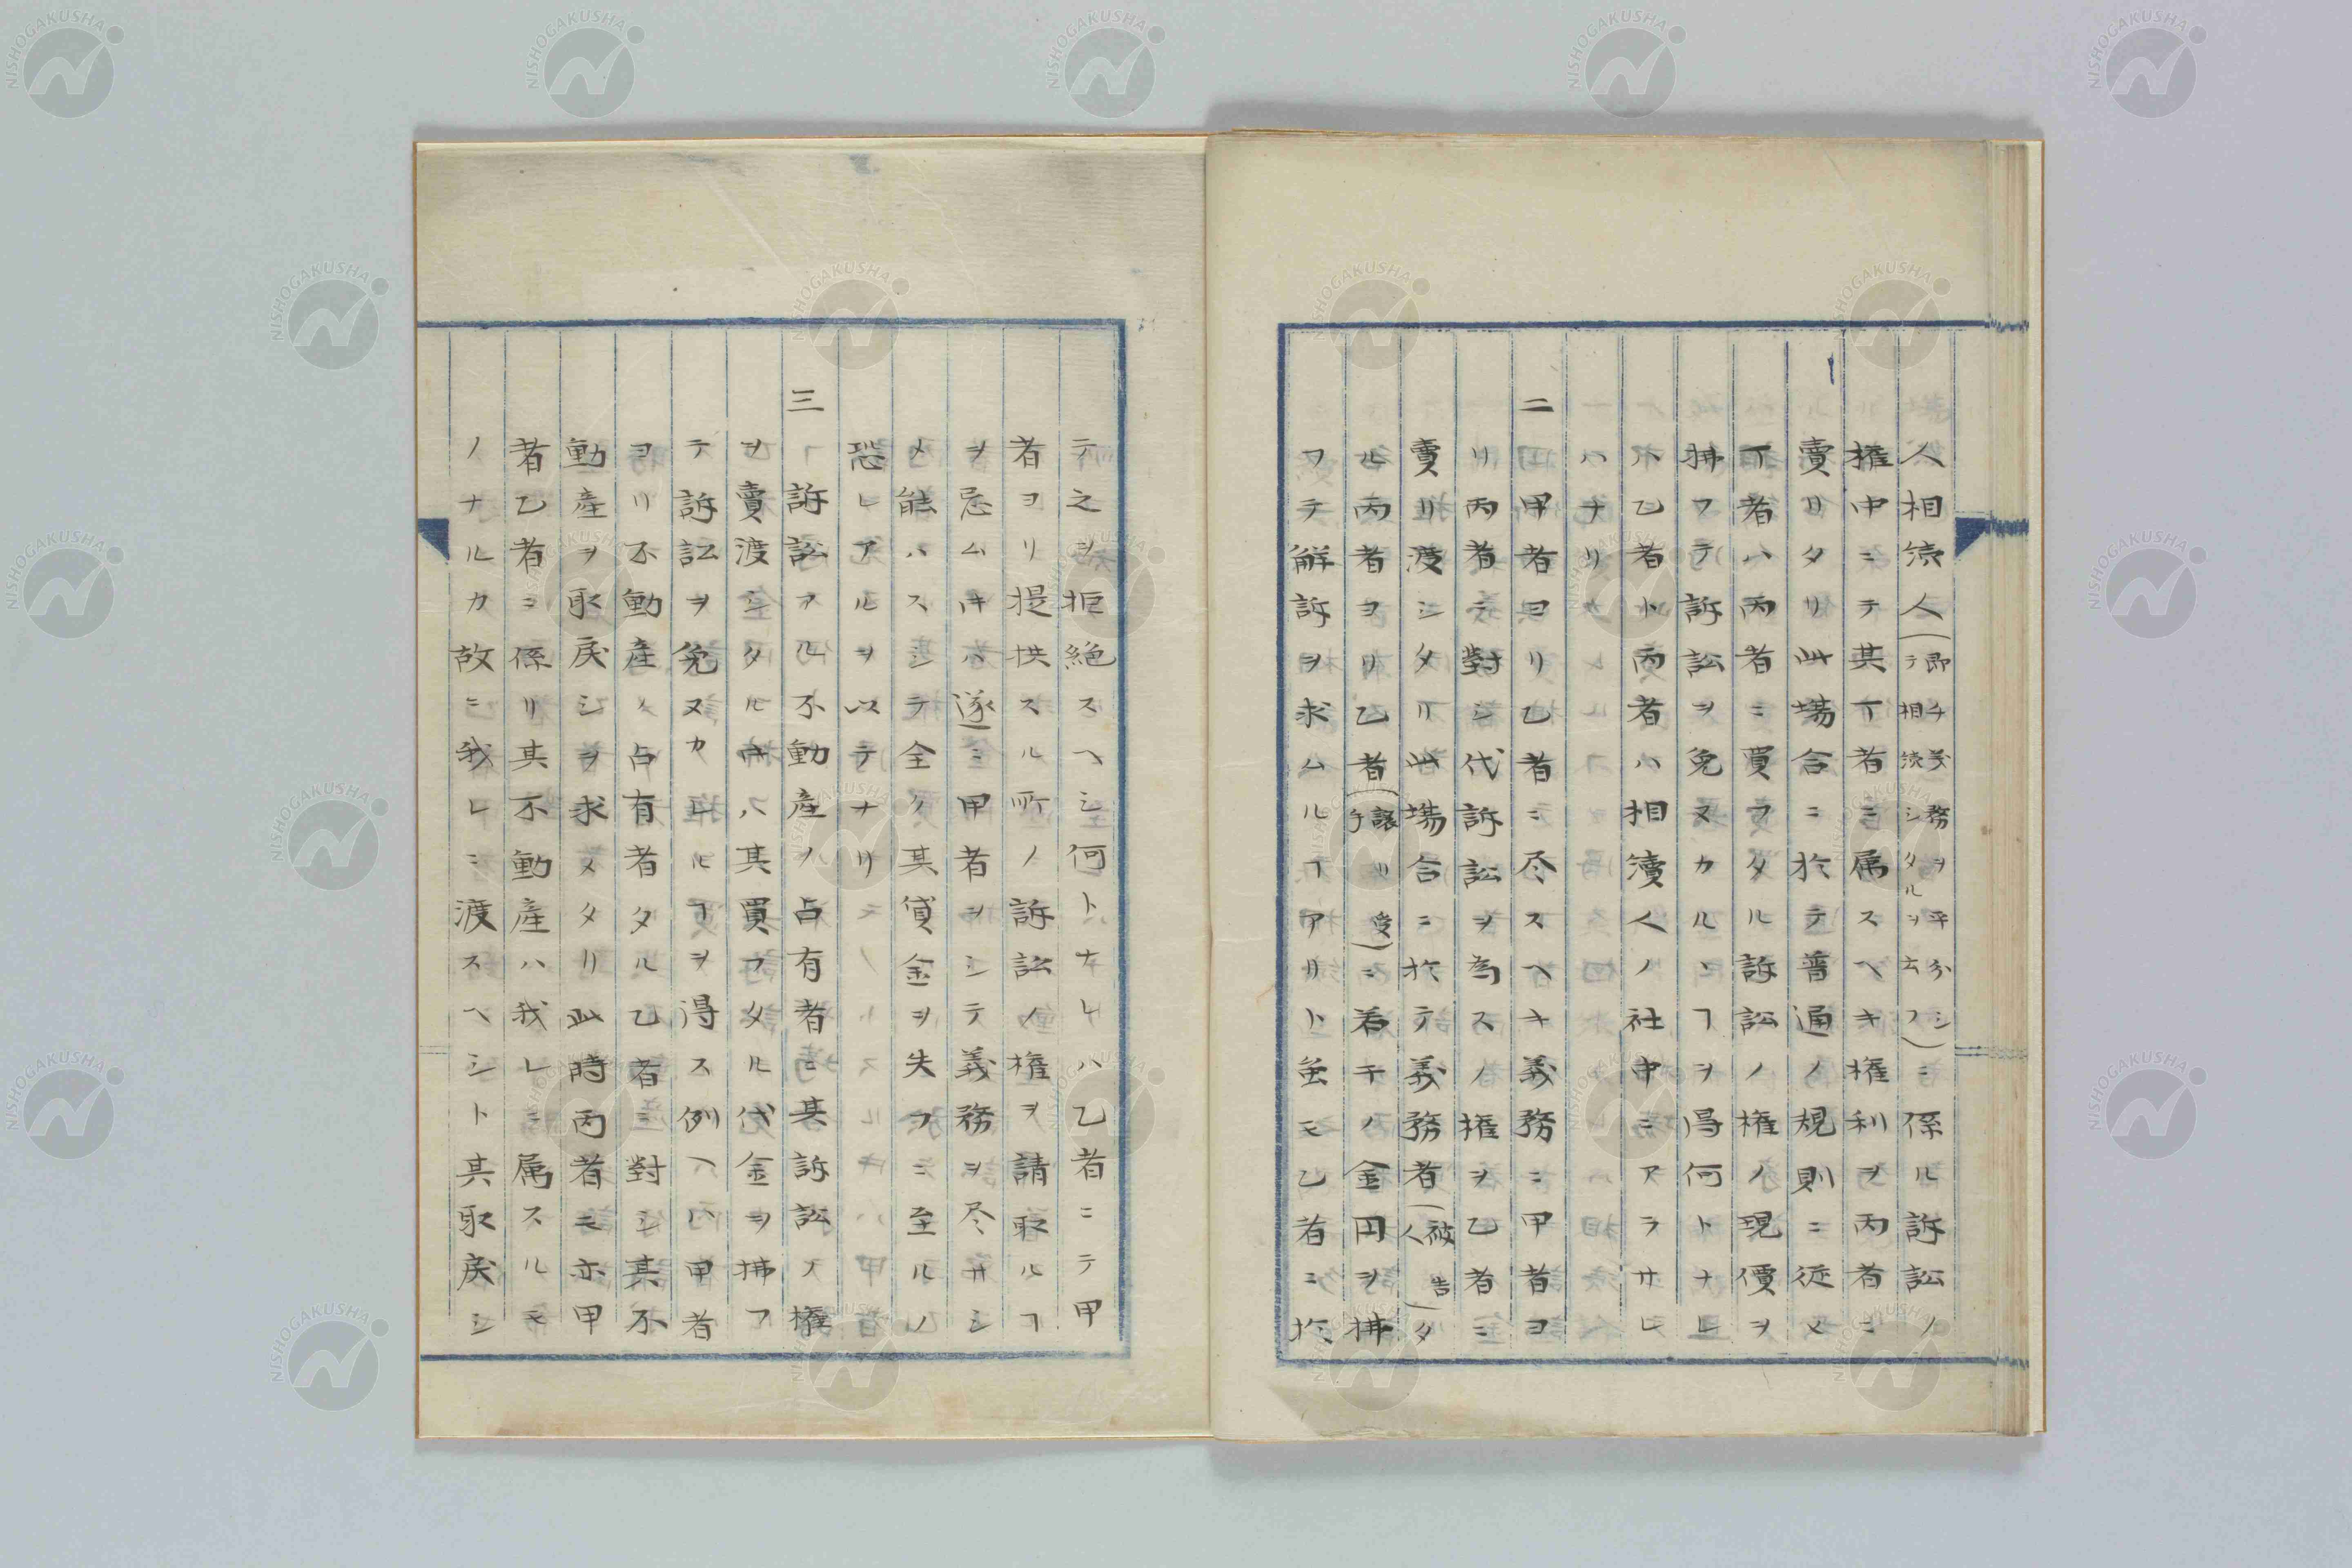 人相続人（即チ義務ヲ平分シテ相続シタルヲ云フ）ニ係ル訴訟ノ
権中ニテ其丁者ニ属スヘキ権利ヲ丙者ニ
賣リタリ此場合ニ於テ普通ノ規則ニ従
丁者ハ丙者ニ買フタル訴訟ノ権ノ現價ヲ
拂フテ訴訟ヲ免ヌカルヽヿヲ得何トナレ
ハ乙者ト丙者ハ相續人ノ社中ニアラサレ
ハナリ
二 甲者ヨリ乙者ニ尽スヘキ義務ニ甲者ヨ
リ丙者ニ對シ代訴訟ヲ為スノ権ヲ乙者ニ
賣リ渡シタリ此場合ニ於テ義務者（被告人）タ
ル丙者ヨリ乙者（譲リ受手）ニ若干ノ金円ヲ拂
フテ解訴ヲ求ムルヿアリト雖モ乙者ニ於
テ之ヲ拒絶スヘシ何トナレハ乙者ニテ甲
者ヨリ提供スル所ノ訴訟ノ権ヲ請取ルヿ
ヲ忌ム寸ハ遂ニ甲者ヲシテ義務ヲ尽サシ
メ能ハスシテ全ク其貸金ヲ失フニ至ルノ
恐レアルヲ以テナリ
三 訴訟アル不動産ノ占有者ニ其訴訟ノ権
ヲ賣渡シタル寸ハ其買フタル代金ヲ拂フ
テ訴訟ヲ免ヌカレルヿヲ得ス例ヘハ甲者
ヨリ不動産ノ占有者タル乙者ニ對シ其不
動産ヲ取戻シヲ求メタリ此時丙者モ亦甲
者乙者ニ係リ其不動産ハ我レニ属スルモ
ノナルカ故ニ我レニ渡スヘシト其取戻シ
NISHOGAKUSHA